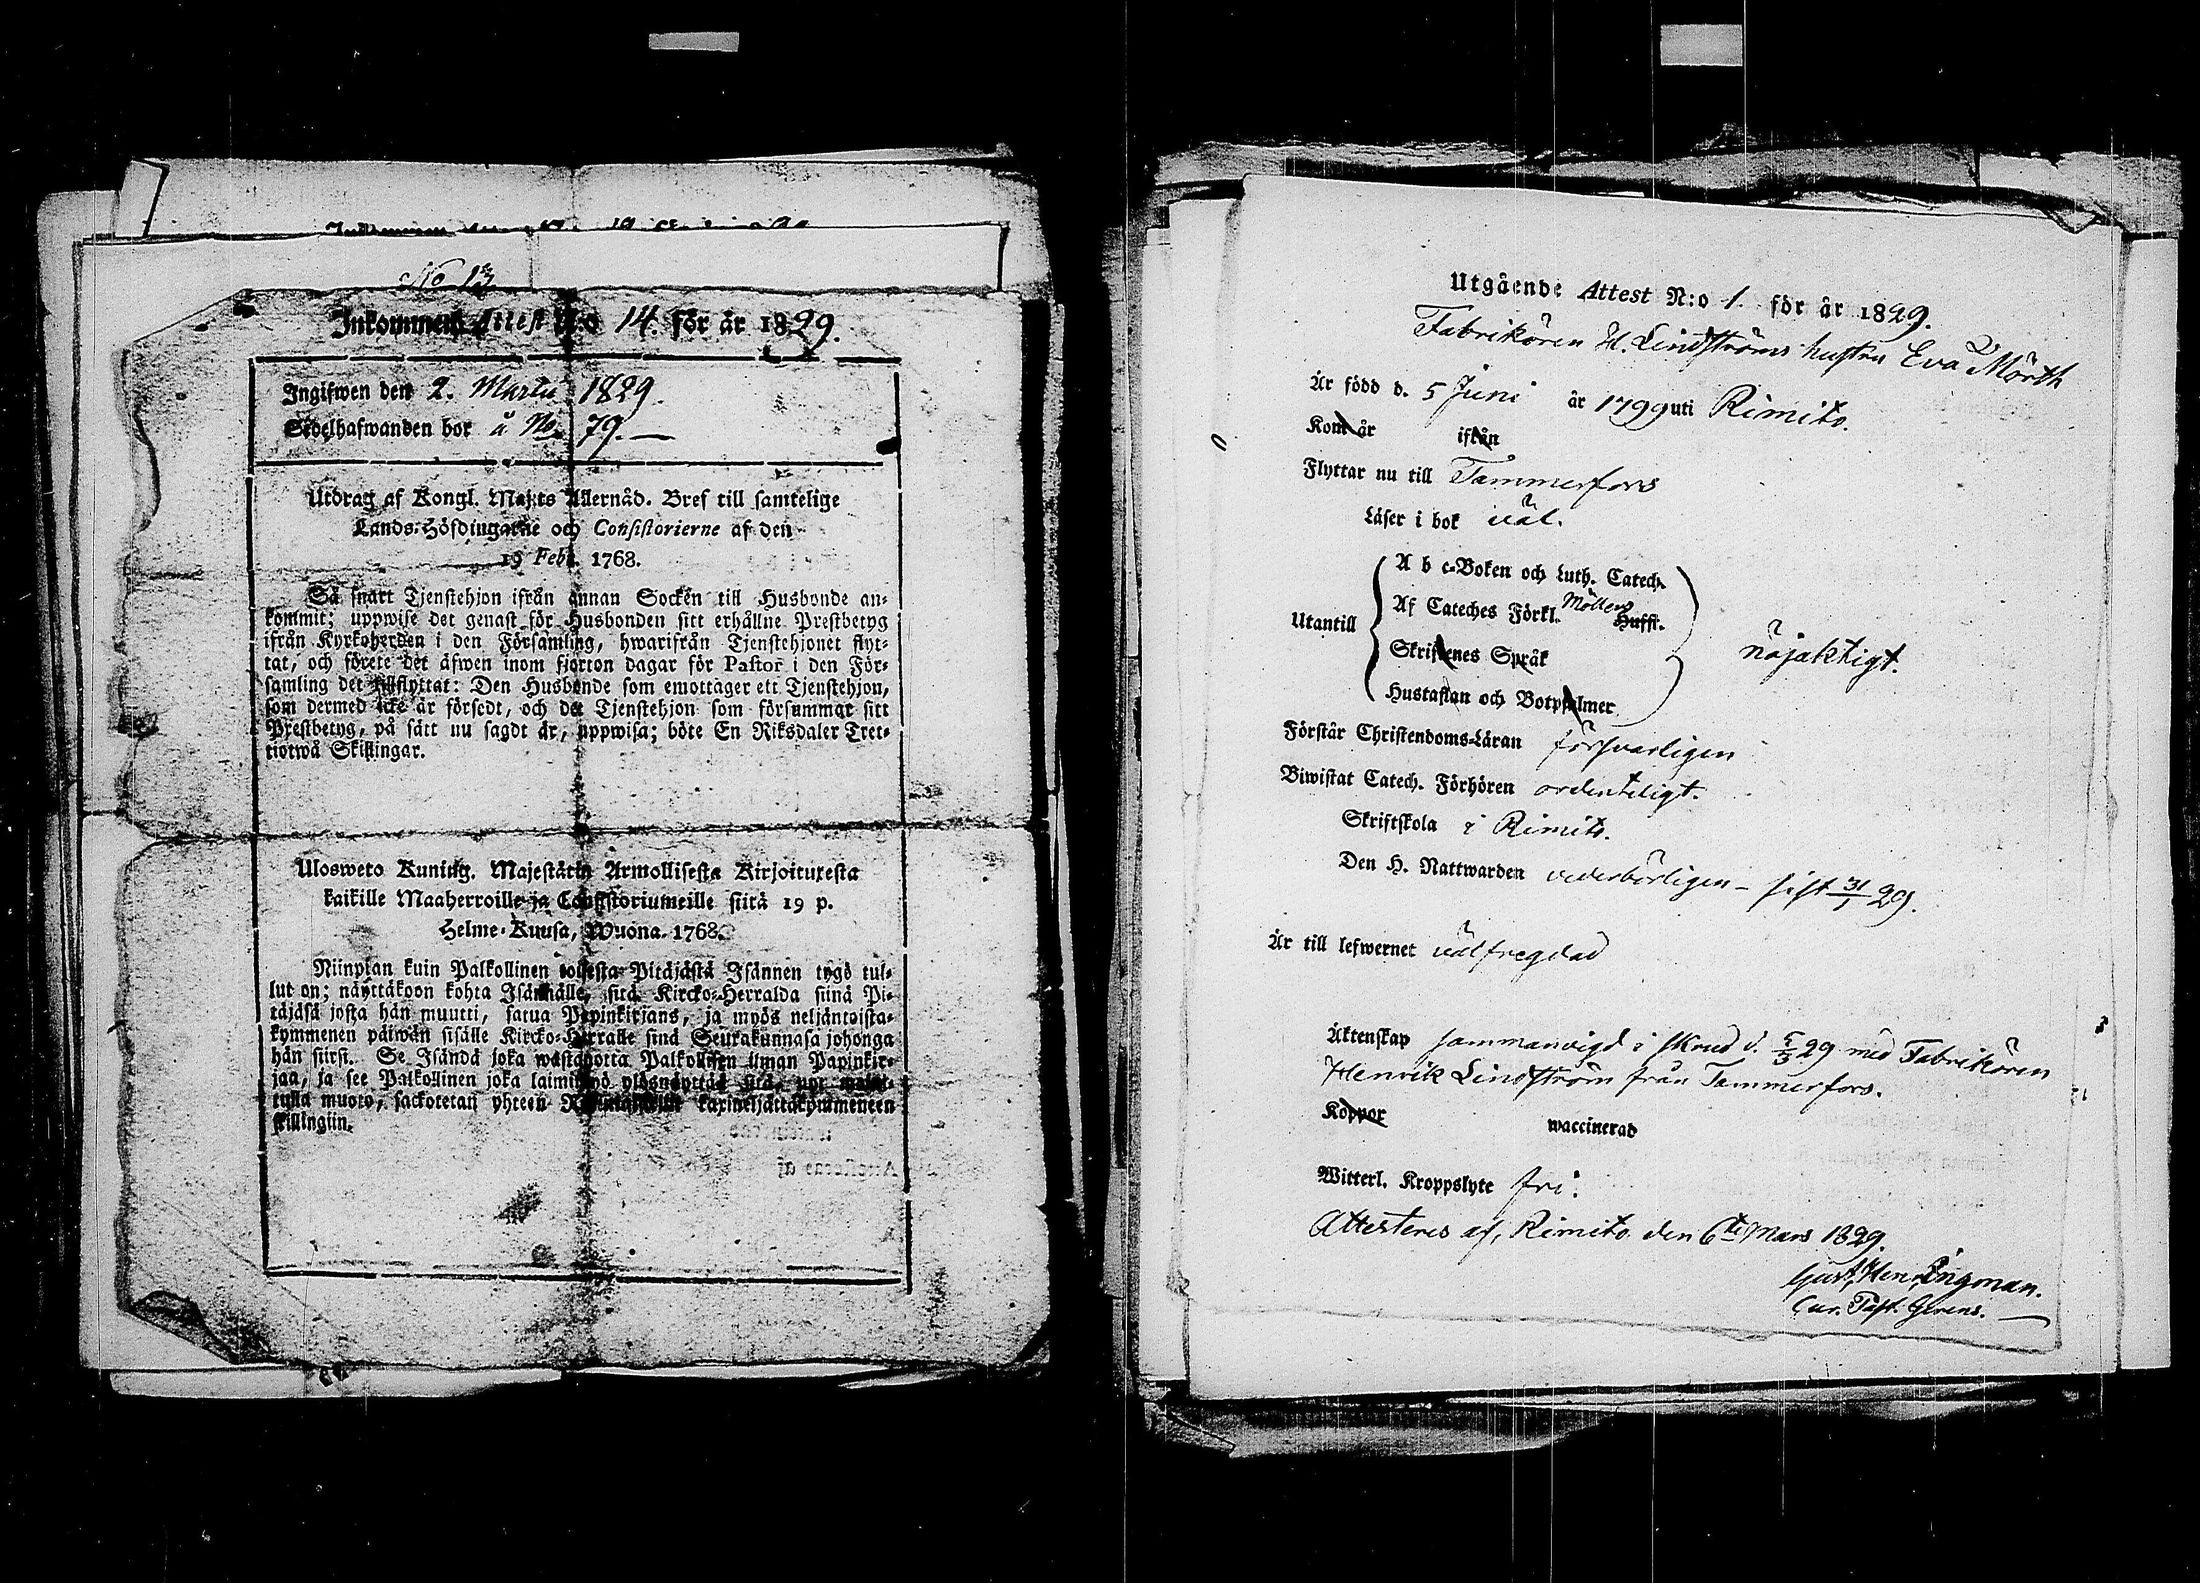 No 13
Inkommen Attest N:o 14. för år 1829.
Ingifwen den 2. Martii 1829.
Sedelhafwanden bor å No 79.
Utdrag af Kongl. Maj:ts Allernåd. Bref till samtelige
Lands-Höfdingarne och Consistorierne af den
19 Febr. 1768.
Så snart Tjenstehjon ifrån annan Socken till Husbonde an-
kommit; uppwise det genast för Husbonden sitt erhållne Prestbetyg
ifrån Kyrkoherden i den Församling, hwarifrån Tjenstehjonet flyt-
tat, och förete det äfwen inom fjorton dagar för Pastor i den För-
samling det tillflyttat: Den Husbonde som emottager ett Tjenstehjon,
som dermed icke är försedt, och det Tjenstehjon som försummar sitt
Prestbetyg, på sätt nu sagdt är, uppwisa; böte En Riksdaler Tret-
tiotwå Skillingar.
Ulosweto Kuning. Majestätin Armollisesta Kirjoituxesta
kaikille Maaherroille ja Consistoriumeille siitä 19 p.
Helme-Kuusa, Wuona 1768.
Niinpian kuin Palkollinen toisesta Pitäjästä Isännen tygö tul-
lut on; näyttäkoon kohta Isännälle, sitä Kircko-Herralda siinä Pi-
täjäsä josta hän muutti, saatua Papinkirjans, ja myös neljäntoista-
kymmenen päiwän sisälle Kircko-Herralle siinä Seurakunnasa johonga
hän siirsi. Se Isändä joka wastanotta Palkollisen ilman Papinkir-
jaa, ja see Palkollinen joka laiminlyö ylösnäyttää sitä, nyt
tulla muoto, sackotetan yhteen kaxineljättäkymmeneen
skillingiin.
Utgående Attest N:o 1. för år 1829.
Fabrikören H. Lindströms hustru Eva Mörth
Är född d. 5 Juni år 1799 uti Rimito.
Kom år ifrån
Flyttar nu till Tammerfors
Läser i bok väl.
Utantill
A b c-Boken och Luth. Catech.
Af Cateches Förkl. Möllers Huffl.
Skriftenes Språk
Hustaflan och Botpsalmer
nöjaktigt.
Förstår Christendoms-Läran försvarligen
Biwistat Catech. Förhören ordenteligt.
Skriftskola i Rimito.
Den H. Nattwarden vederbörligen – sist 31/1 29.
Är till lefwernet välfregdad
Äktenskap sammanvigd i skrud d. 5/3 29 med Fabrikören
Henrik Lindström från Tammerfors.
Koppor waccinerad
Witterl. Kroppslyte fri.
Attesteras af, Rimito den 6te Mars 1829.
Gust. Henr. Ingman.
Cur. Past. Gerens.